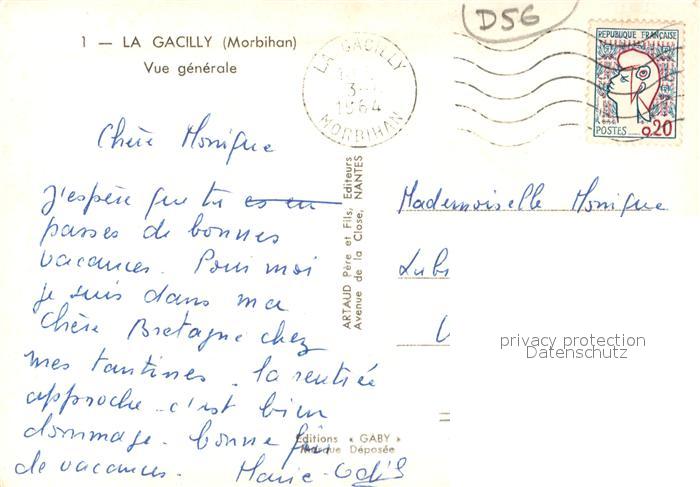 D56
1 — LA GACILLY (Morbihan)
Vue générale
LA GACILLY
3
1964
MORBIHAN
REPUBLIQUE FRANÇAISE
POSTES 0,20
Chère Monique
J'espère que tu es en
passes de bonnes
vacances. Pour moi
je suis dans ma
Chère Bretagne chez
mes tantines. la rentrée
approche c'est bien
dommage. bonne fin
de vacances.
Marie-Odile
ARTAUD Père et Fils, Editeurs
Avenue de la Close, NANTES
Editions « GABY »
Marque Déposée
Mademoiselle Monique
privacy protection
Datenschutz